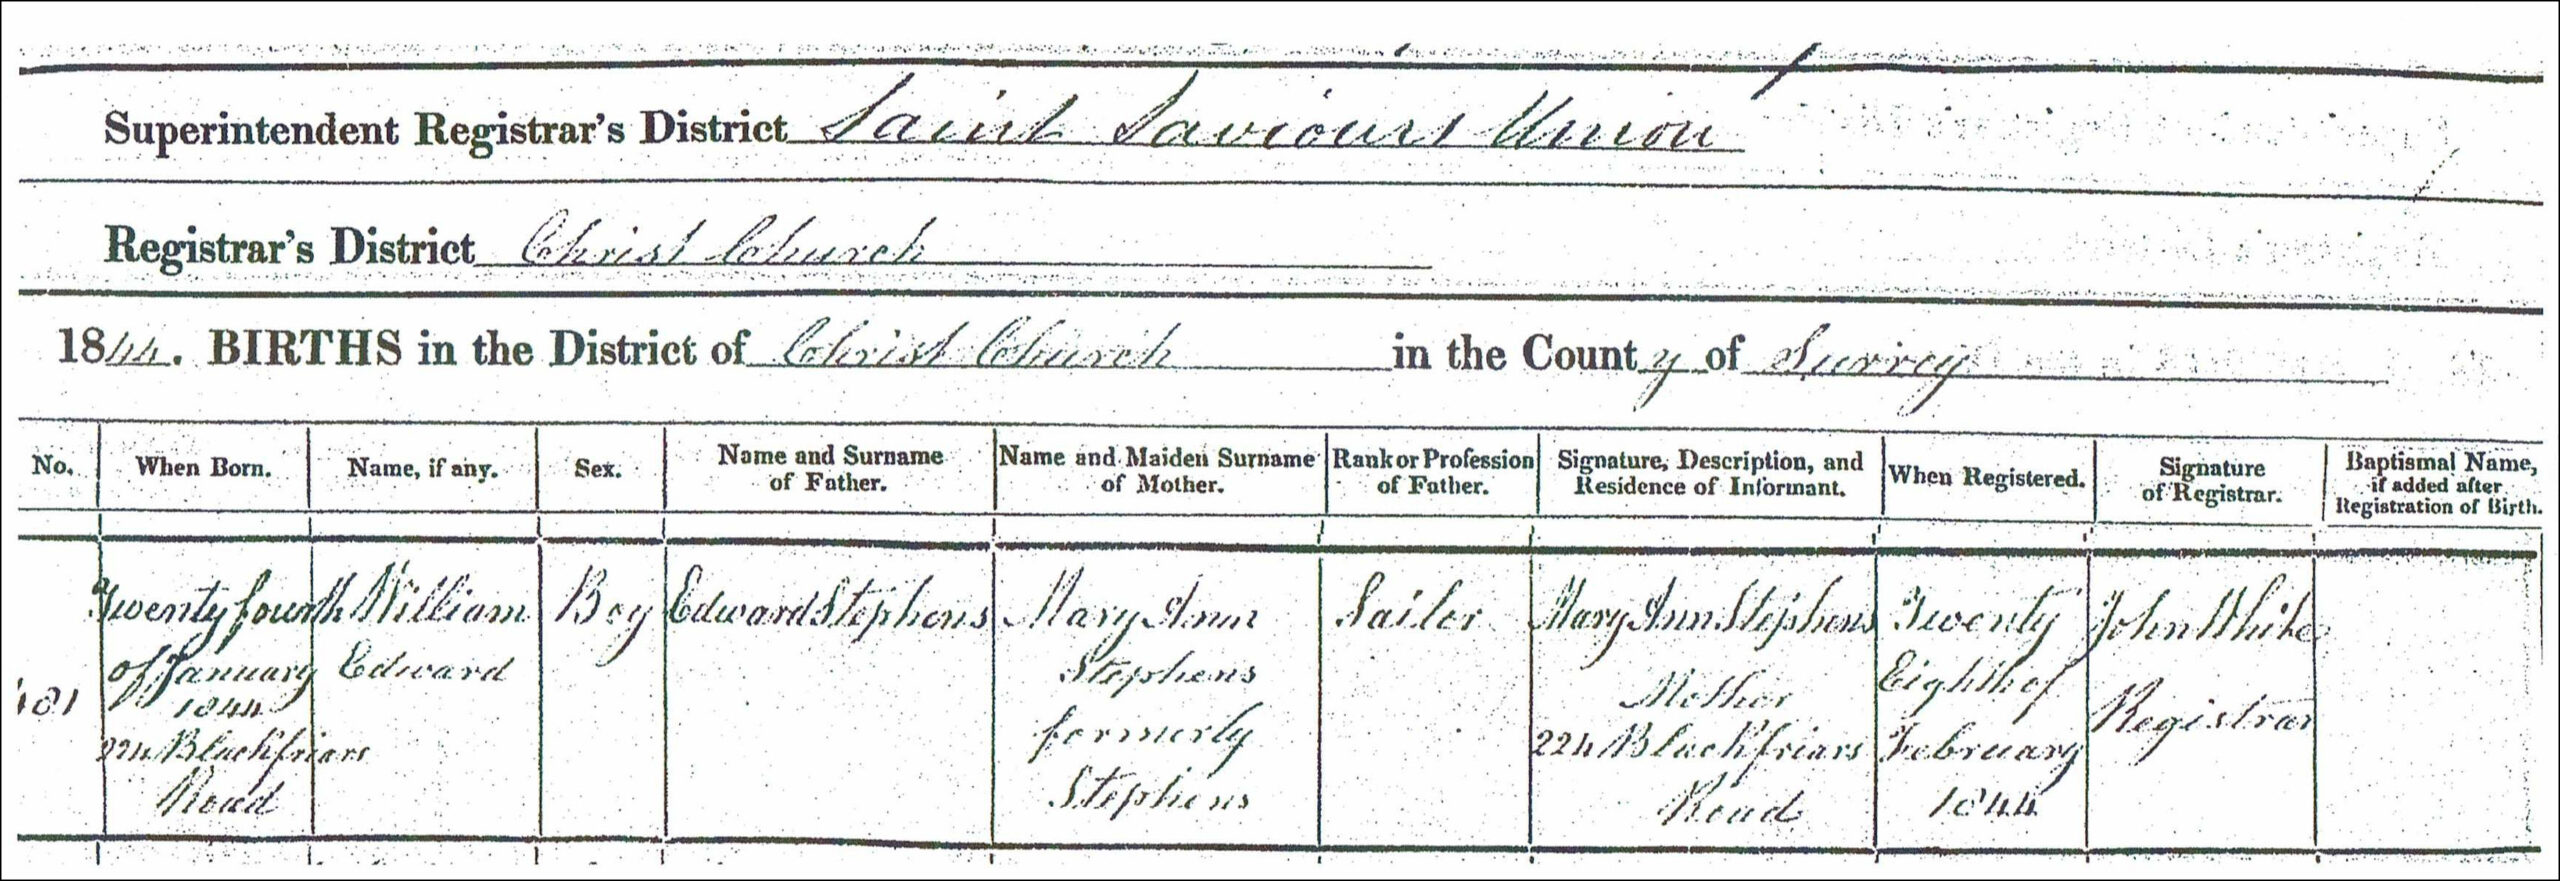 Superintendent Registrar's District Saint Saviours Union
Registrar's District Christ Church
1844. BIRTHS in the District of Christ Church in the County of Surrey
No. When Born. Name, if any. Sex. Name and Surname of Father. Name and Maiden Surname of Mother. Rank or Profession of Father. Signature, Description, and Residence of Informant. When Registered. Signature of Registrar. Baptismal Name, if added after Registration of Birth.
Twenty fourth William Boy Edward Stephens Mary Ann Sailor Mary Ann Stephens Twenty John White
of January Edward Stephens Mother Eighth of Registrar
481 1844 formerly 224 Blackfriars February
224 Blackfriars Stephens Road 1844
Road